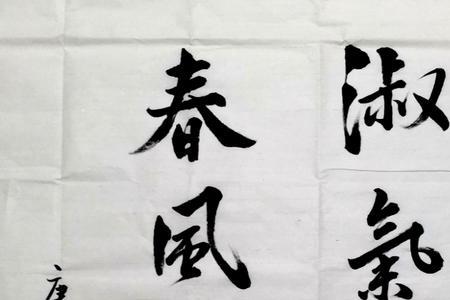 淑氣
春風
唐